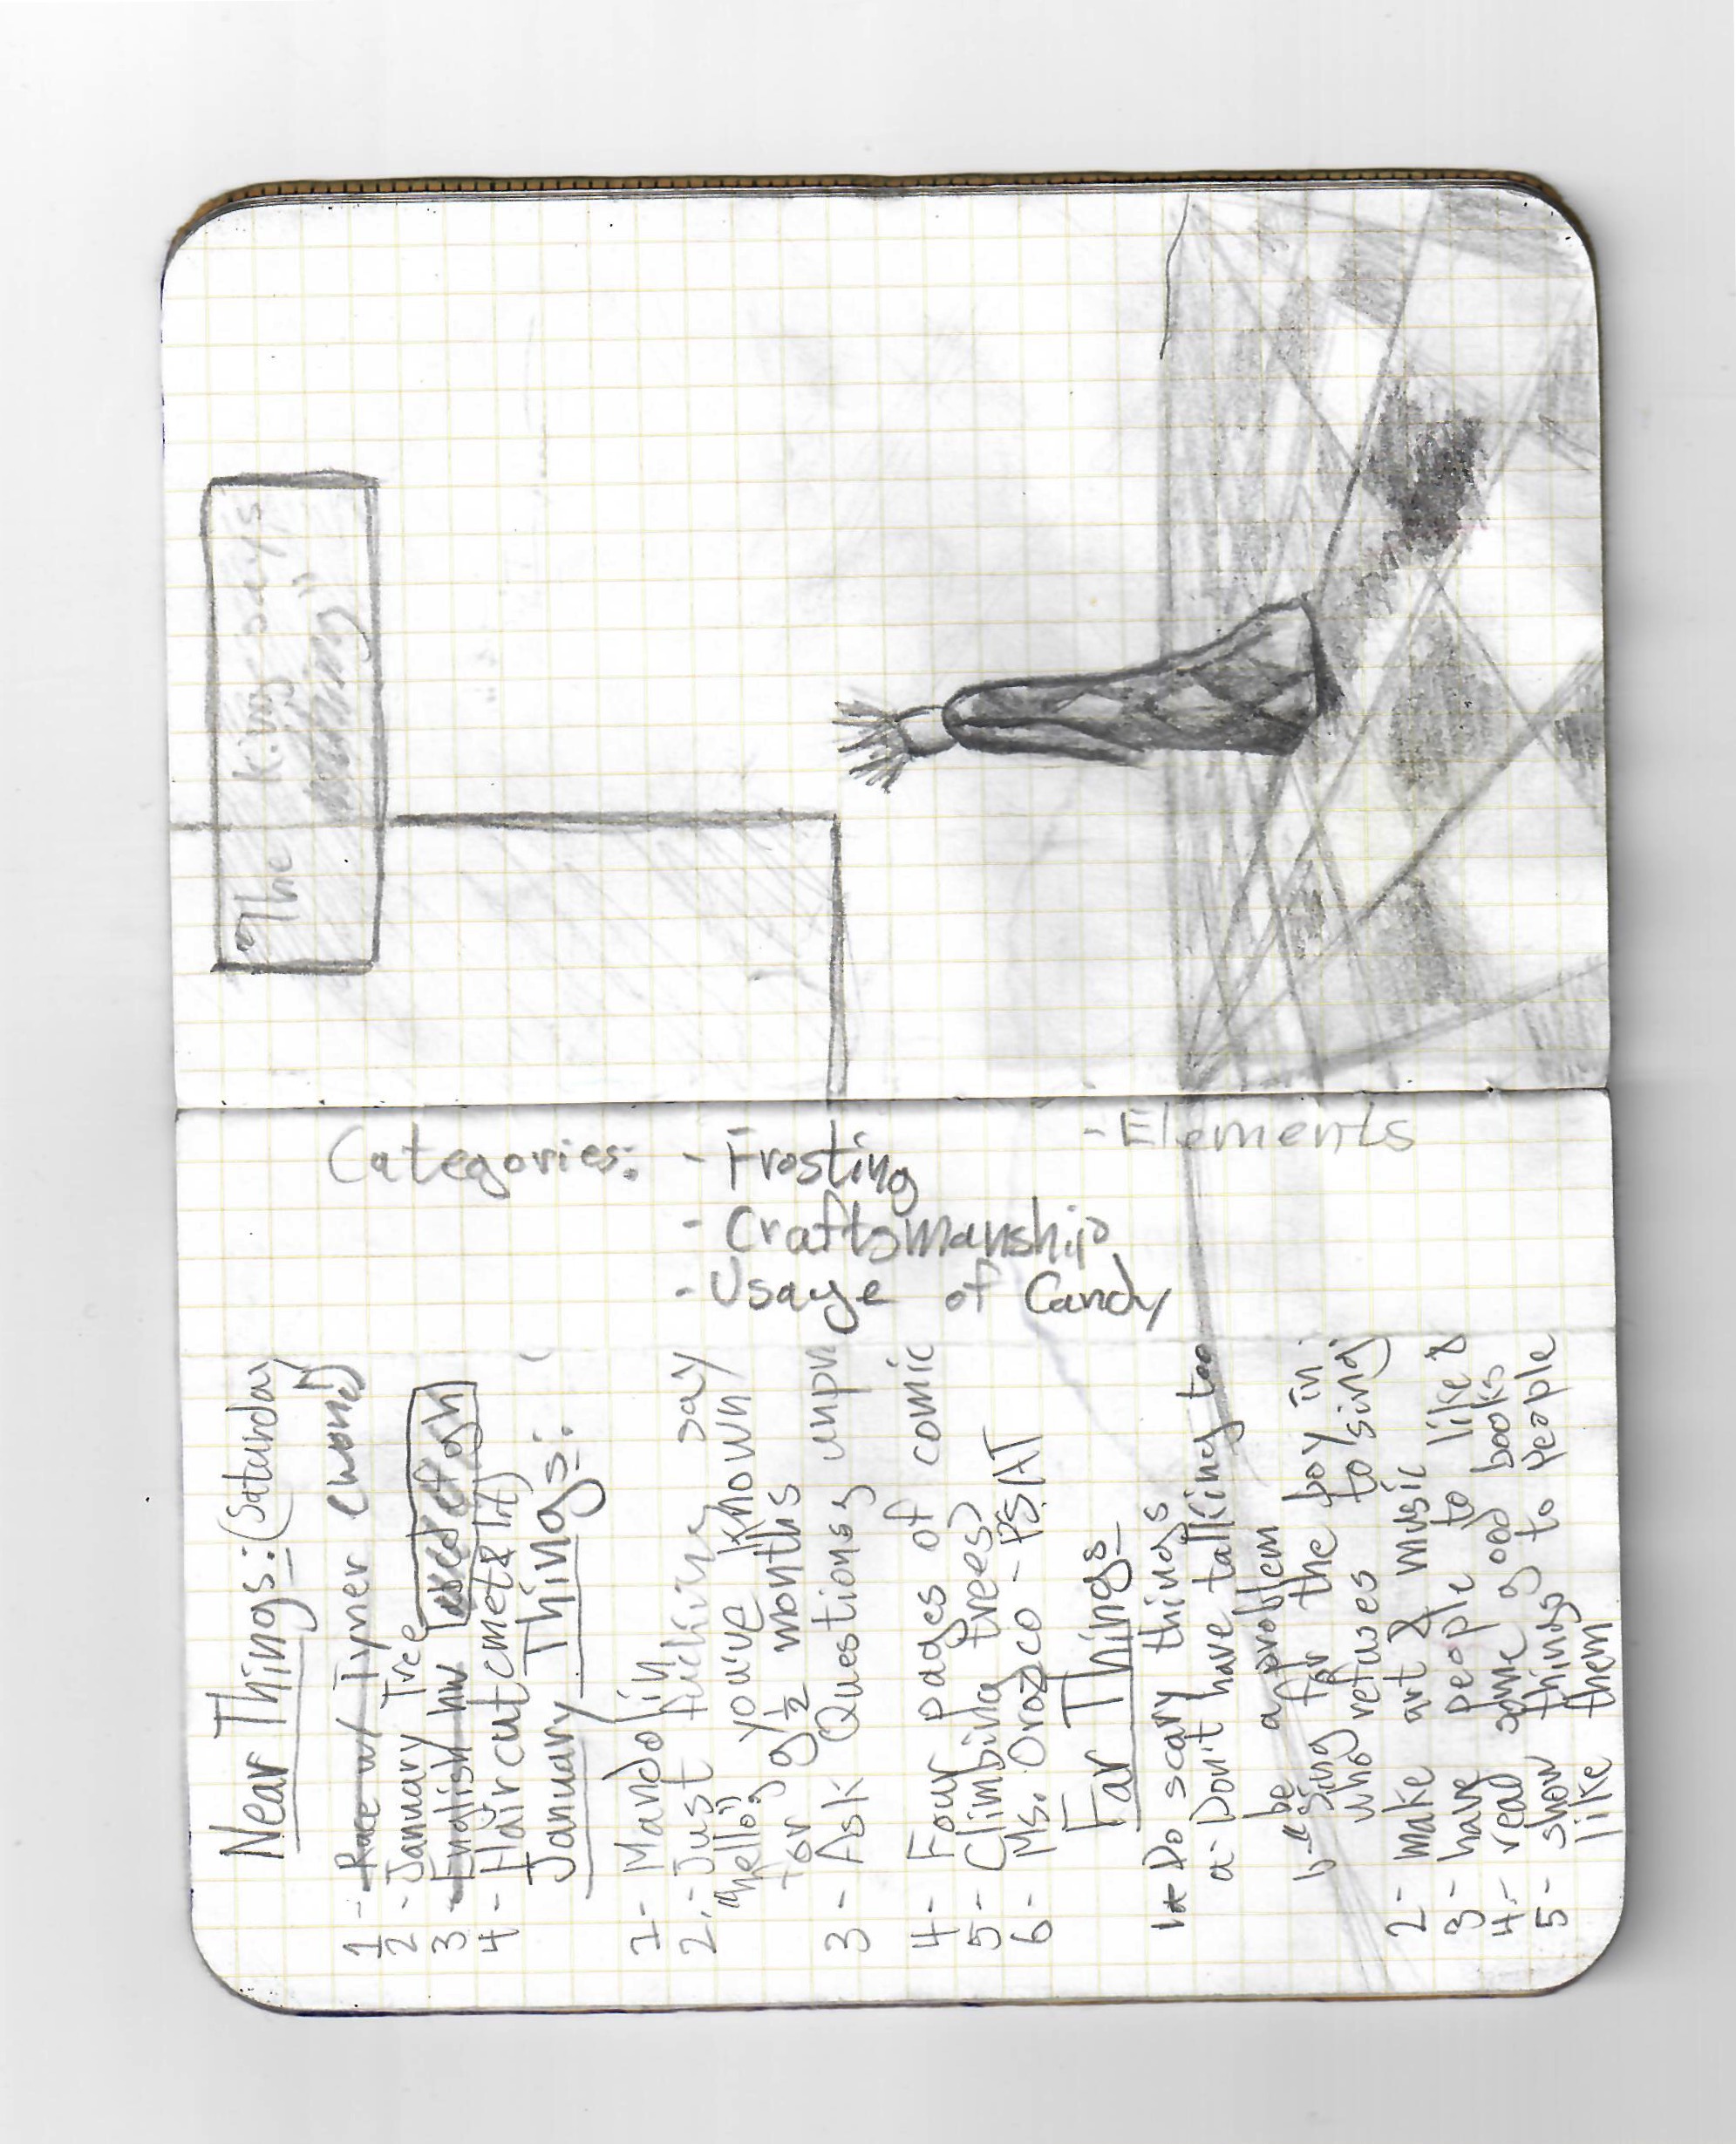 Near Things: (Saturday
1 - Race w/ Tyner (won!)
2 - January Tree
3 - English hw abcdefgh
4 - Haircut (met & lit)
January Things:
1 - Mandolin
2. - Just fucking say
"hello", you've known
for 9 ½ months
3 - Ask Questions, unpr
4 - Four pages of comic
5 - Climbing trees
6 - Ms. Orozco - PSAT
Far Things
1 - Do scary things
a - Don't have talking too
be a problem
b - "Sing for the boy in
who refuses to sing
2 - make art & music
3 - have people to like &
4 - read some good books
5 - show things to people
like them
Categories:
- Frosting
- Craftsmanship
- Usage of Candy
- Elements
"The king says
nothing"